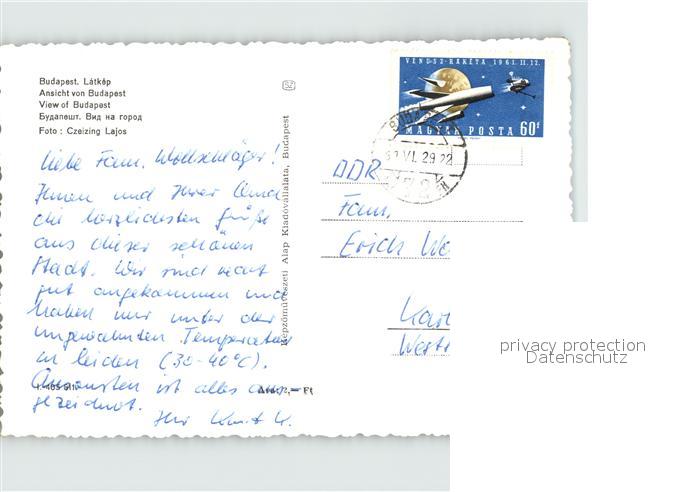 Budapest. Látkép
Ansicht von Budapest
View of Budapest
Будапешт. Вид на город
Foto : Czeizing Lajos
Liebe Fam. Wollschläger!
Ihnen und Ihrer Oma
die herzlichsten Grüße
aus dieser schönen
Stadt. Wir sind recht
gut angekommen und
haben nur unter den
ungewohnten Temperaturen
zu leiden (30-40°C).
Ansonsten ist alles aus-
gezeichnet.
Ihr
Képzőművészeti Alap Kiadóvállalata, Budapest
SZ
Ára: 2,— Ft
VENUSZ-RAKÉTA 1961.II.12.
MAGYAR POSTA 60f
VI. 29 22
DDR
Fam.
Erich
privacy protection
Datenschutz